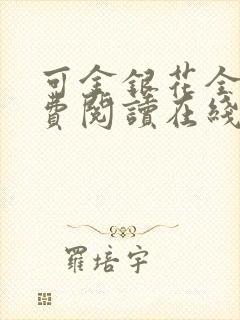 可金銀花全
費閱讀在綫
羅培宇